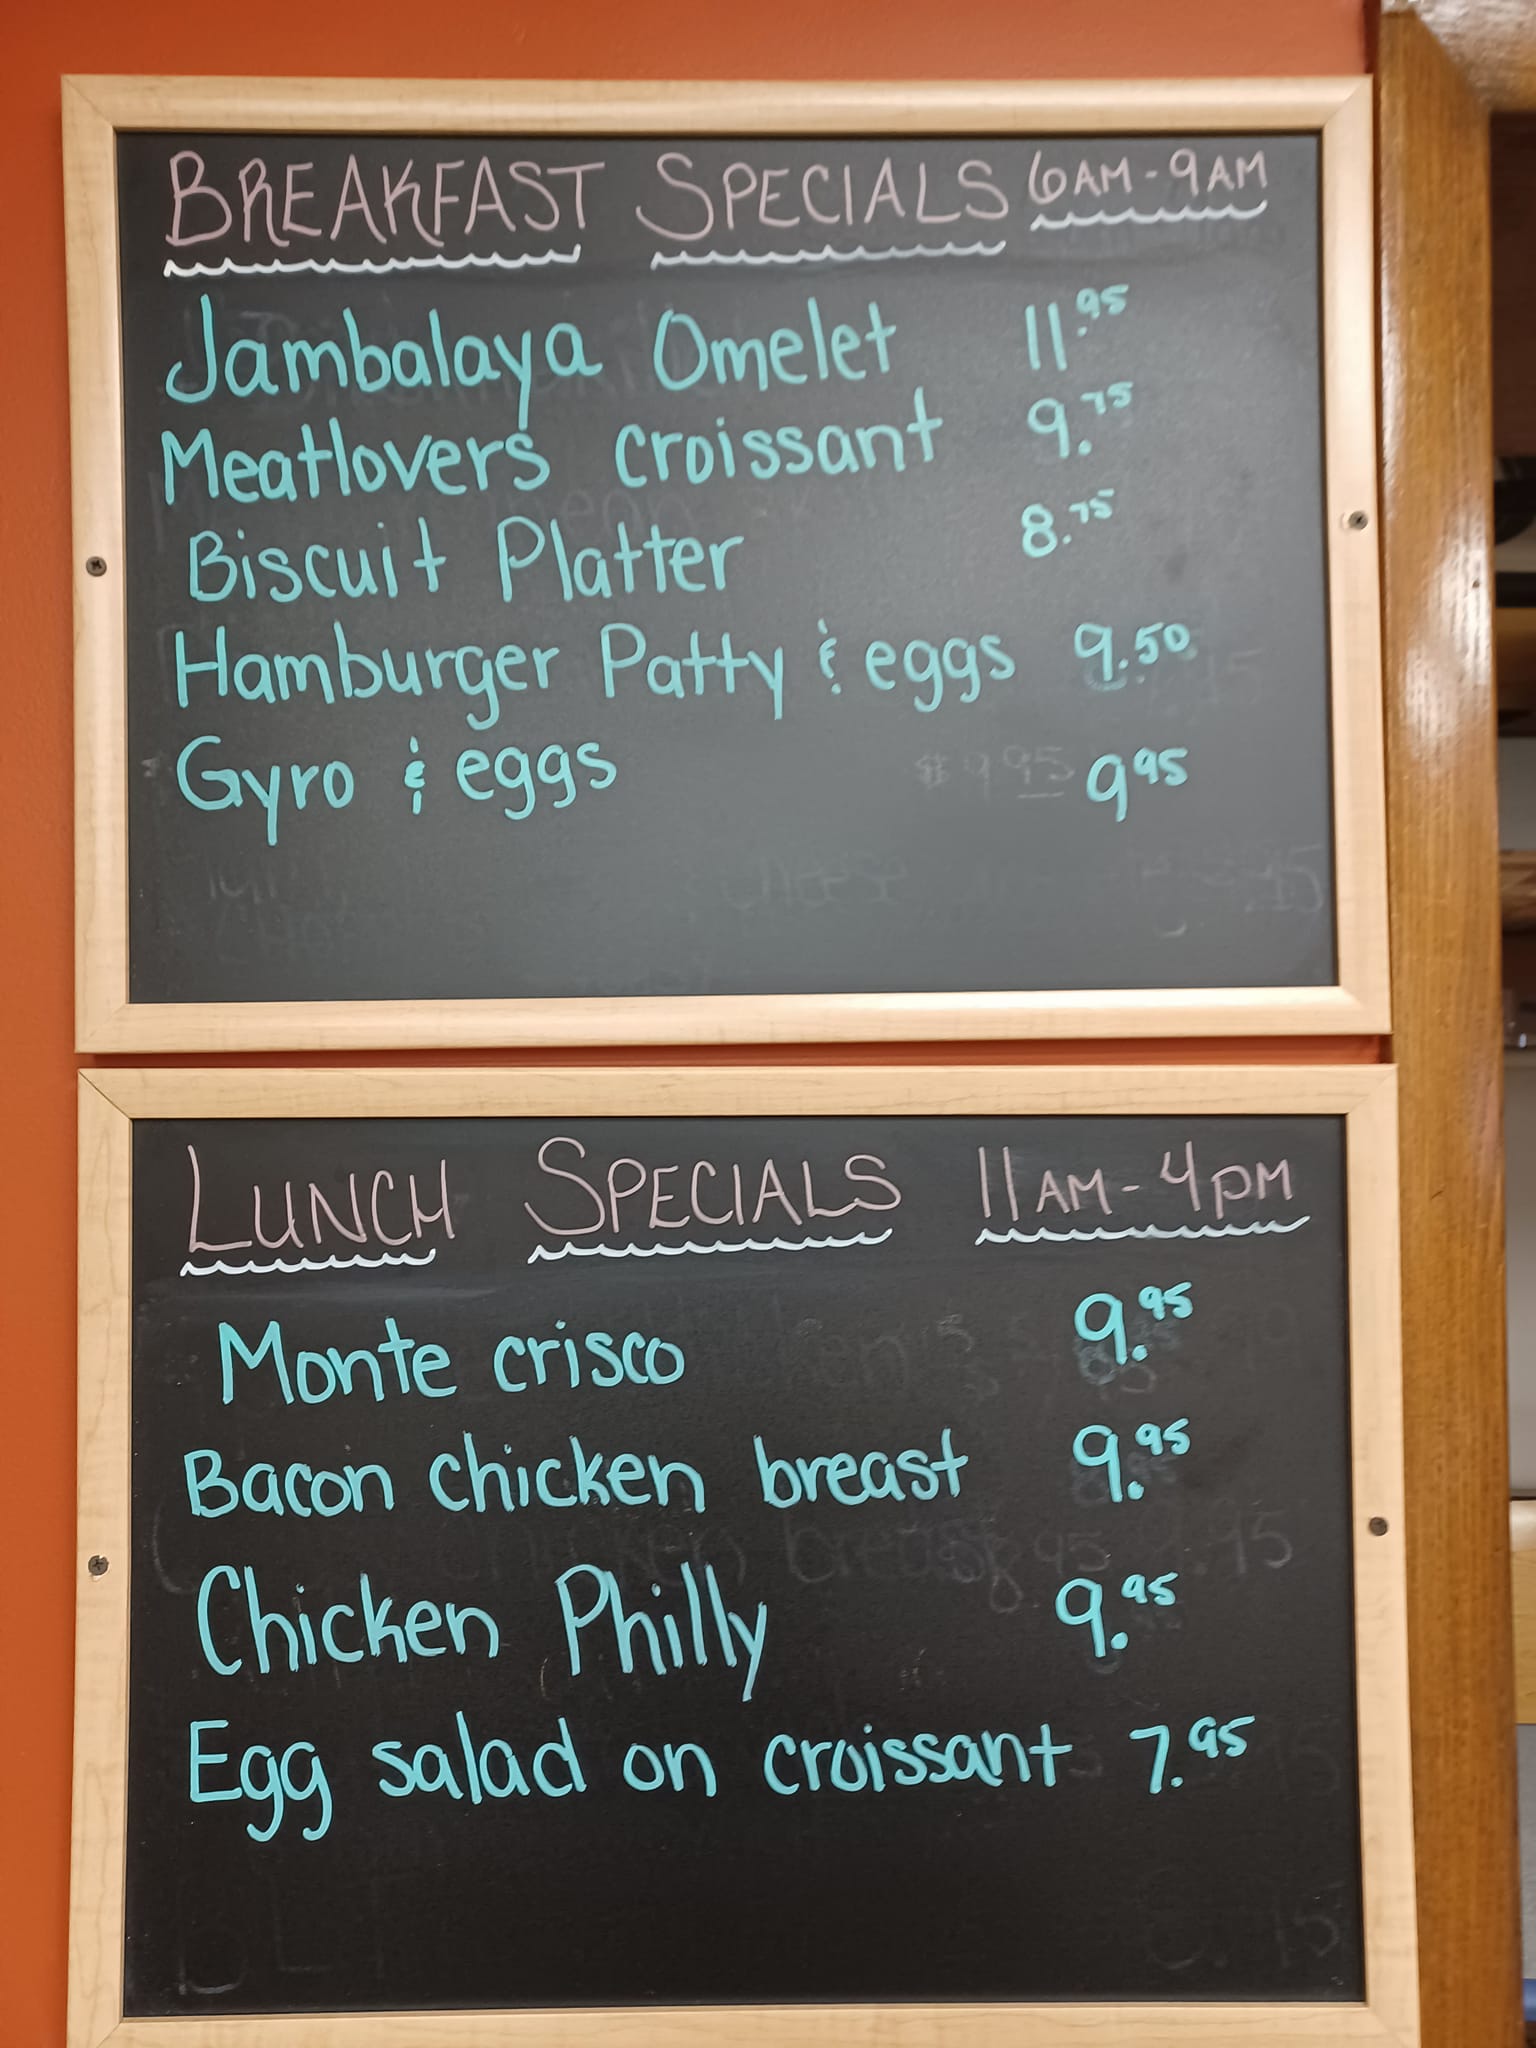 BREAKFAST SPECIALS 6AM-9AM
Jambalaya Omelet 11.95
Meatlovers croissant 9.75
Biscuit Platter 8.75
Hamburger Patty & eggs 9.50
Gyro & eggs $9.95 995
LUNCH SPECIALS 11AM-4PM
Monte crisco 9.95
Bacon chicken breast 9.95
Chicken Philly 9.95
Egg salad on croissant 7.95